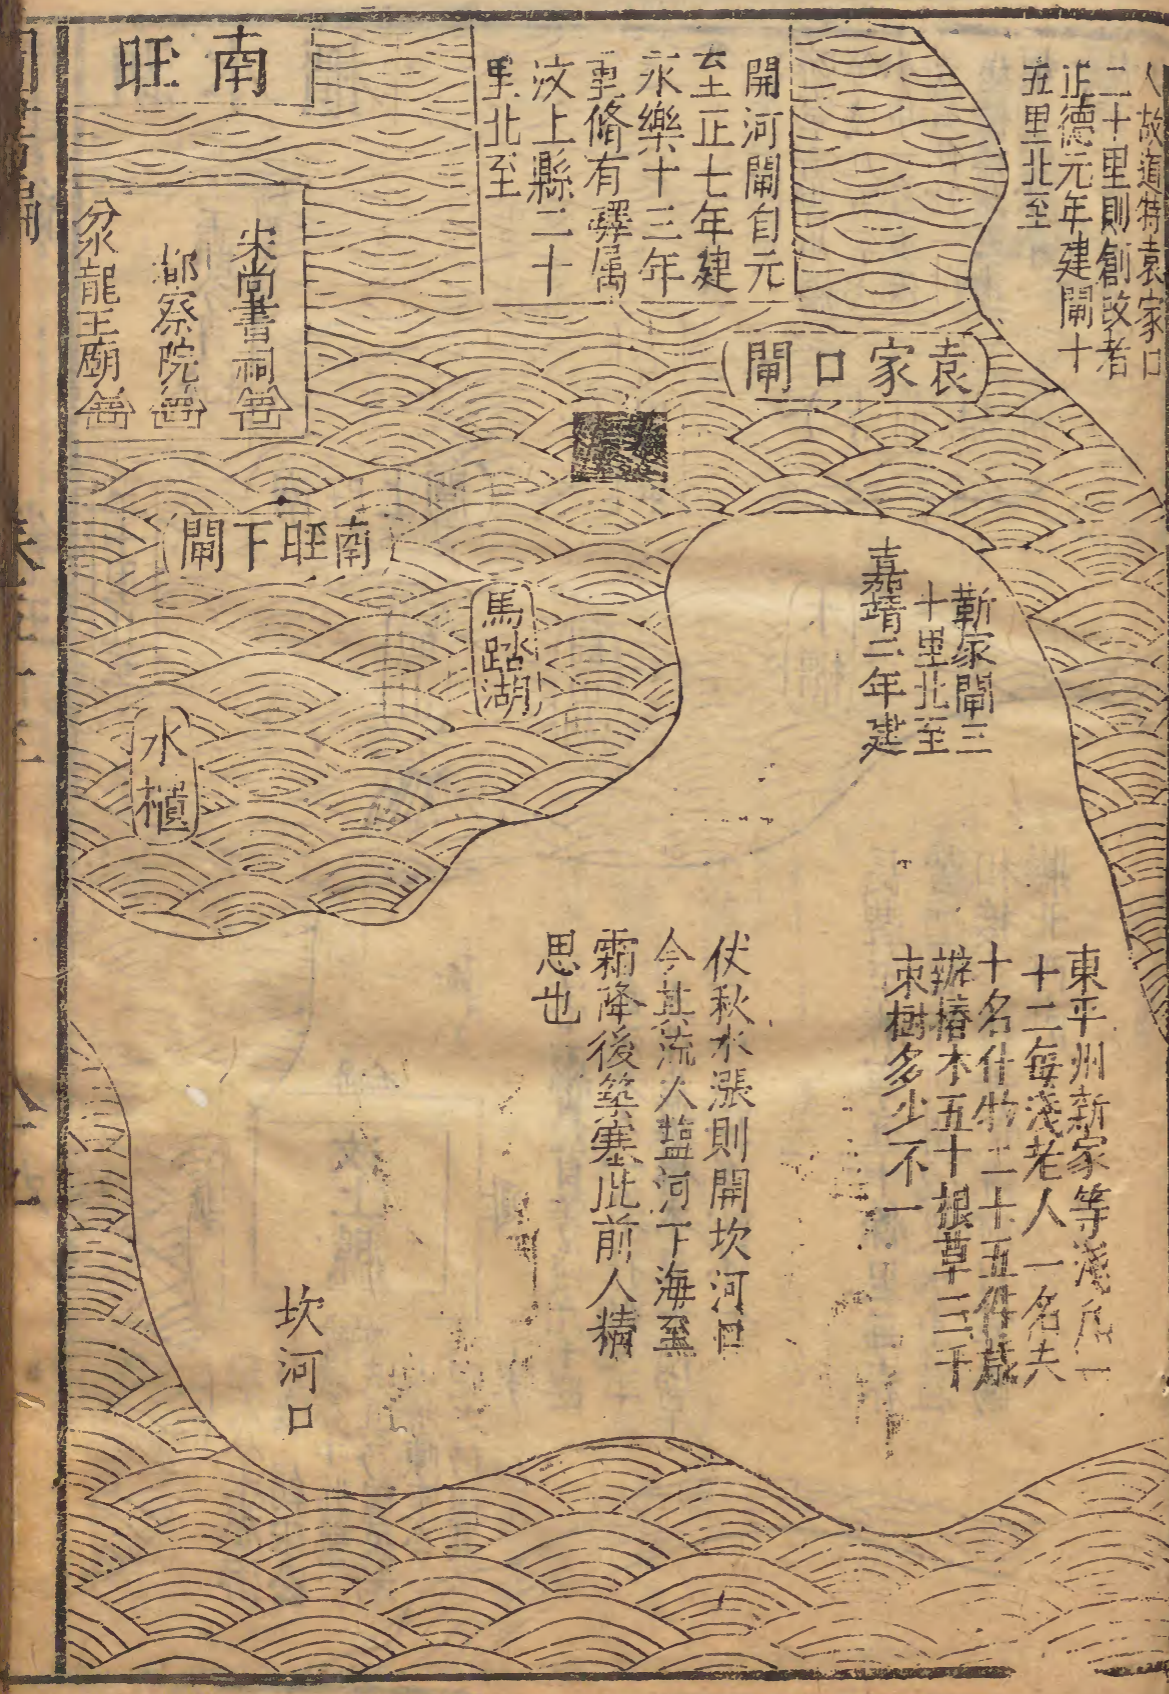 人故道特袁家口
二十里則創改者
正德元年建閘十
五里北至
開河閘自元
至正七年建
永樂十三年
重脩有驛属
汶上縣二十
里北至
南旺
袁家口閘
宋尚書祠
都察院
分水龍王廟
南旺下閘
馬踏湖
水櫃
靳家閘三
十里北至
嘉靖二年建
東平州靳家等淺
十二每淺老人一名夫
十名什物二十五件歲
辦樁木五十根草三千
束樹多少不一
伏秋水漲則開坎河口
令其流入鹽河下海至
霜降後築塞此前人精
思也
坎河口